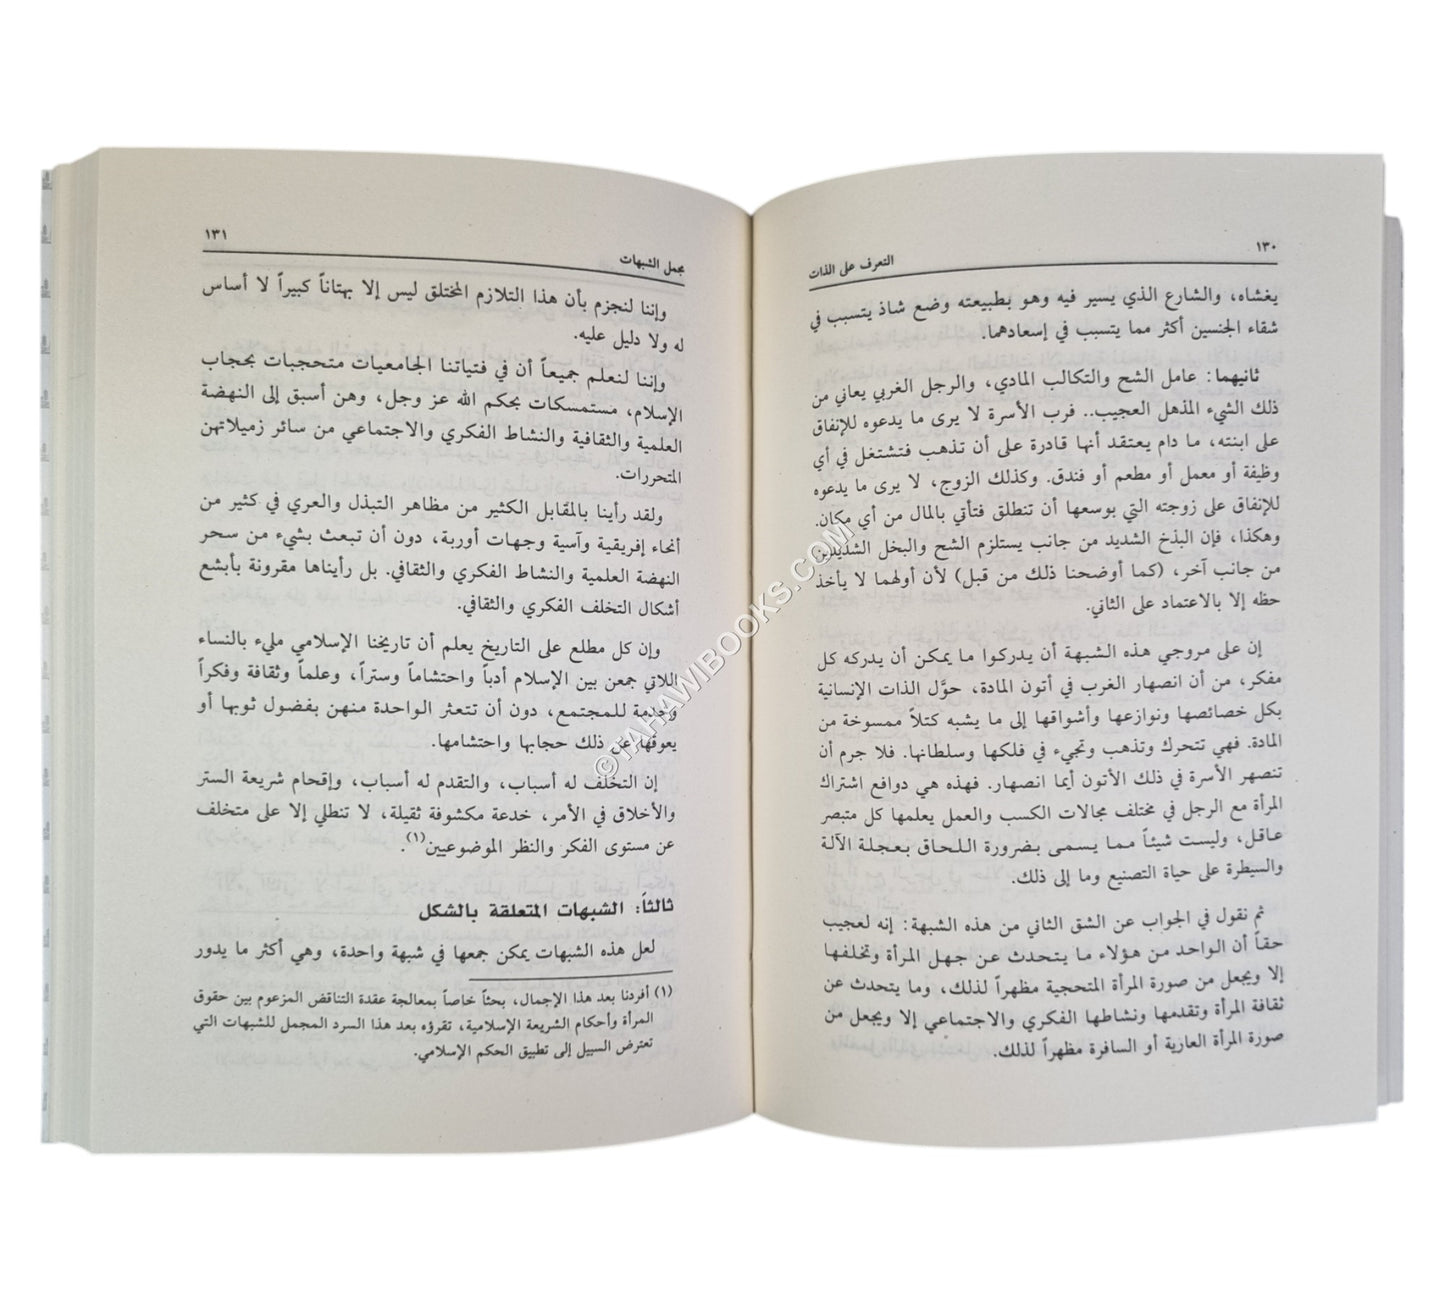 ١٣٠
التعرف على الذات
يغشاه، والشارع الذي يسير فيه وهو بطبيعته وضع شاذ يتسبب في
شقاء الجنسين أكثر مما يتسبب في إسعادهما.
ثانيهما: عامل الشح والتكالب المادي، والرجل الغربي يعاني من
ذلك الشيء المذهل العجيب.. فرب الأسرة لا يرى ما يدعوه للإنفاق
على ابنته، ما دام يعتقد أنها قادرة على أن تذهب فتشتغل في أي
وظيفة أو معمل أو مطعم أو فندق. وكذلك الزوج، لا يرى ما يدعوه
للإنفاق على زوجته التي بوسعها أن تنطلق فتأتي بالمال من أي مكان.
وهكذا، فإن البذخ الشديد من جانب يستلزم الشح والبخل الشديدين
من جانب آخر، (كما أوضحنا ذلك من قبل) لأن أولهما لا يأخذ
حظه إلا بالاعتماد على الثاني.
إن على مروجي هذه الشبهة أن يدركوا ما يمكن أن يدركه كل
مفكر، من أن انصهار الغرب في أتون المادة، حوَّل الذات الإنسانية
بكل خصائصها ونوازعها وأشواقها إلى ما يشبه كتلاً ممسوخة من
المادة. فهي تتحرك وتذهب وتجيء في فلكها وسلطانها. فلا جرم أن
تنصهر الأسرة في ذلك الأتون أيما انصهار. فهذه هي دوافع اشتراك
المرأة مع الرجل في مختلف مجالات الكسب والعمل يعلمها كل متبصر
عاقل، وليست شيئاً مما يسمى بضرورة اللحاق بعجلة الآلة
والسيطرة على حياة التصنيع وما إلى ذلك.
ثم نقول في الجواب عن الشق الثاني من هذه الشبهة: إنه لعجيب
حقاً أن الواحد من هؤلاء ما يتحدث عن جهل المرأة وتخلفها
إلا ويجعل من صورة المرأة المتحجبة مظهراً لذلك، وما يتحدث عن
ثقافة المرأة وتقدمها ونشاطها الفكري والاجتماعي إلا ويجعل من
صورة المرأة العارية أو السافرة مظهراً لذلك.
١٣١
مجمل الشبهات
وإننا لنجزم بأن هذا التلازم المختلق ليس إلا بهتاناً كبيراً لا أساس
له ولا دليل عليه.
وإننا لنعلم جميعاً أن في فتياتنا الجامعيات متحجبات بحجاب
الإسلام، مستمسكات بحكم الله عز وجل، وهن أسبق إلى النهضة
العلمية والثقافية والنشاط الفكري والاجتماعي من سائر زميلاتهن
المتحررات.
ولقد رأينا بالمقابل الكثير من مظاهر التبذل والعري في كثير من
أنحاء إفريقية وآسية وجهات أوربة، دون أن تبعث بشيء من سحر
النهضة العلمية والنشاط الفكري والثقافي. بل رأيناها مقرونة بأبشع
أشكال التخلف الفكري والثقافي.
وإن كل مطلع على التاريخ يعلم أن تاريخنا الإسلامي مليء بالنساء
اللاتي جمعن بين الإسلام أدباً واحتشاماً وستراً، وعلماً وثقافة وفكراً
وخدمة للمجتمع، دون أن تتعثر الواحدة منهن بفضول ثوبها أو
يعوقها عن ذلك حجابها واحتشامها.
إن التخلف له أسباب، والتقدم له أسباب، وإقحام شريعة الستر
والأخلاق في الأمر، خدعة مكشوفة ثقيلة، لا تنطلي إلا على متخلف
عن مستوى الفكر والنظر الموضوعيين(١).
ثالثاً: الشبهات المتعلقة بالشكل
لعل هذه الشبهات يمكن جمعها في شبهة واحدة، وهي أكثر ما يدور
(١) أفردنا بعد هذا الإجمال، بحثاً خاصاً بمعالجة عقدة التناقض المزعوم بين حقوق
المرأة وأحكام الشريعة الإسلامية، تقرؤه بعد هذا السرد المجمل للشبهات التي
تعترض السبيل إلى تطبيق الحكم الإسلامي.
©TAHAWIBOOKS.COM